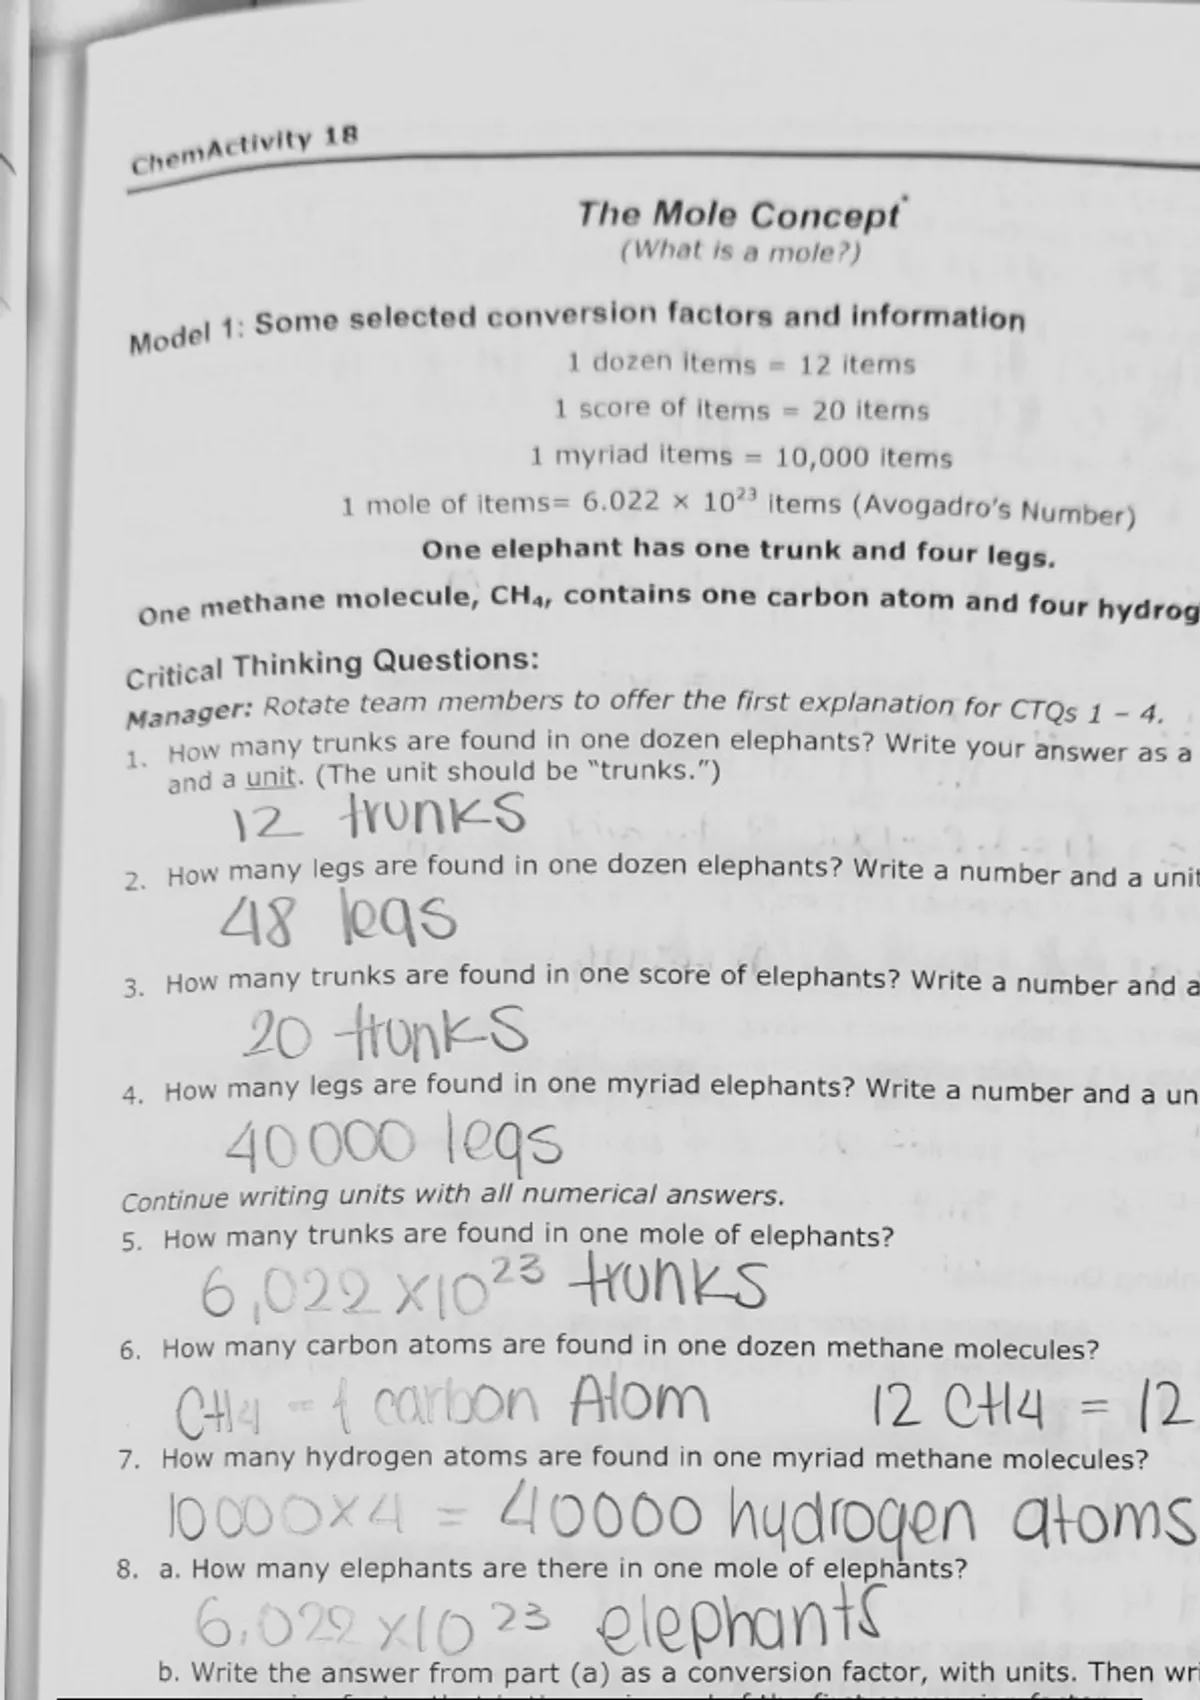 ChemActivity 18
The Mole Concept*
(What is a mole?)
Model 1: Some selected conversion factors and information
1 dozen items = 12 items
1 score of items = 20 items
1 myriad items = 10,000 items
1 mole of items= 6.022 × 10²³ items (Avogadro's Number)
One elephant has one trunk and four legs.
One methane molecule, CH₄, contains one carbon atom and four hydrog
Critical Thinking Questions:
Manager: Rotate team members to offer the first explanation for CTQs 1 – 4.
1. How many trunks are found in one dozen elephants? Write your answer as a
and a unit. (The unit should be "trunks.")
12 trunks
2. How many legs are found in one dozen elephants? Write a number and a unit
48 legs
3. How many trunks are found in one score of elephants? Write a number and a
20 trunks
4. How many legs are found in one myriad elephants? Write a number and a un
40000 legs
Continue writing units with all numerical answers.
5. How many trunks are found in one mole of elephants?
6,022 x10²³ trunks
6. How many carbon atoms are found in one dozen methane molecules?
CH4 = 1 carbon Atom 12 CH4 = 12
7. How many hydrogen atoms are found in one myriad methane molecules?
10000x4 = 40000 hydrogen atoms
8. a. How many elephants are there in one mole of elephants?
6.022 x10²³ elephants
b. Write the answer from part (a) as a conversion factor, with units. Then wri